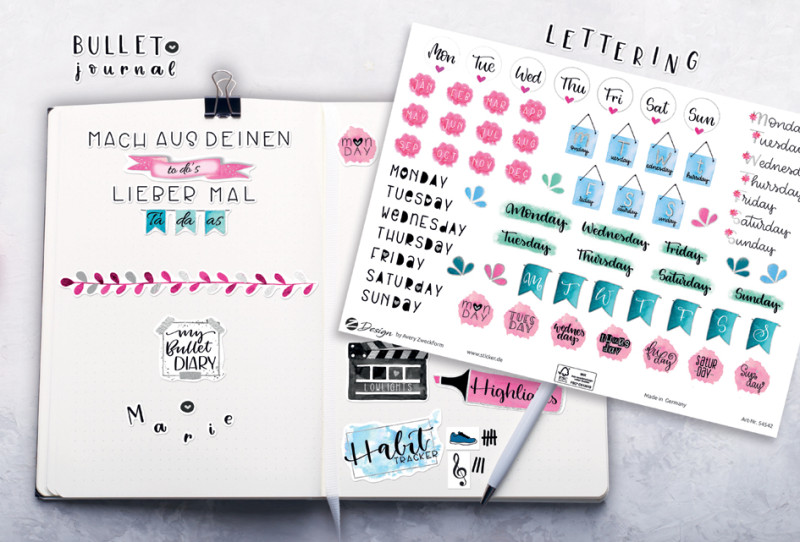 BULLET
journal
LETTERING
MACH AUS DEINEN
to do's
LIEBER MAL
Ta da as
my
Bullet
DIARY
Marie
MON
DAY
LOWLIGHTS
Highlights
Habit
TRACKER
Mon Tue Wed Thu Fri Sat Sun
JAN FEB MAR APR
MAY JUN JUL AUG
SEP OCT NOV DEC
M T W T
monday tuesday wednesday thursday
F S S
friday saturday sunday
MONDAY
TUESDAY
WEDNESDAY
THURSDAY
FRIDAY
SATURDAY
SUNDAY
Monday Wednesday Friday
Tuesday Thursday Saturday Sunday
M T W T F S S
MON DAY
TUES DAY
wednes day
THURS day
Fri day
SATUR DAY
Sun day
Monday
Tuesday
Wednesday
Thursday
Friday
Saturday
Sunday
Z Design by Avery Zweckform
www.sticker.de
FSC
MIX
Made in Germany
Art-Nr. 54542